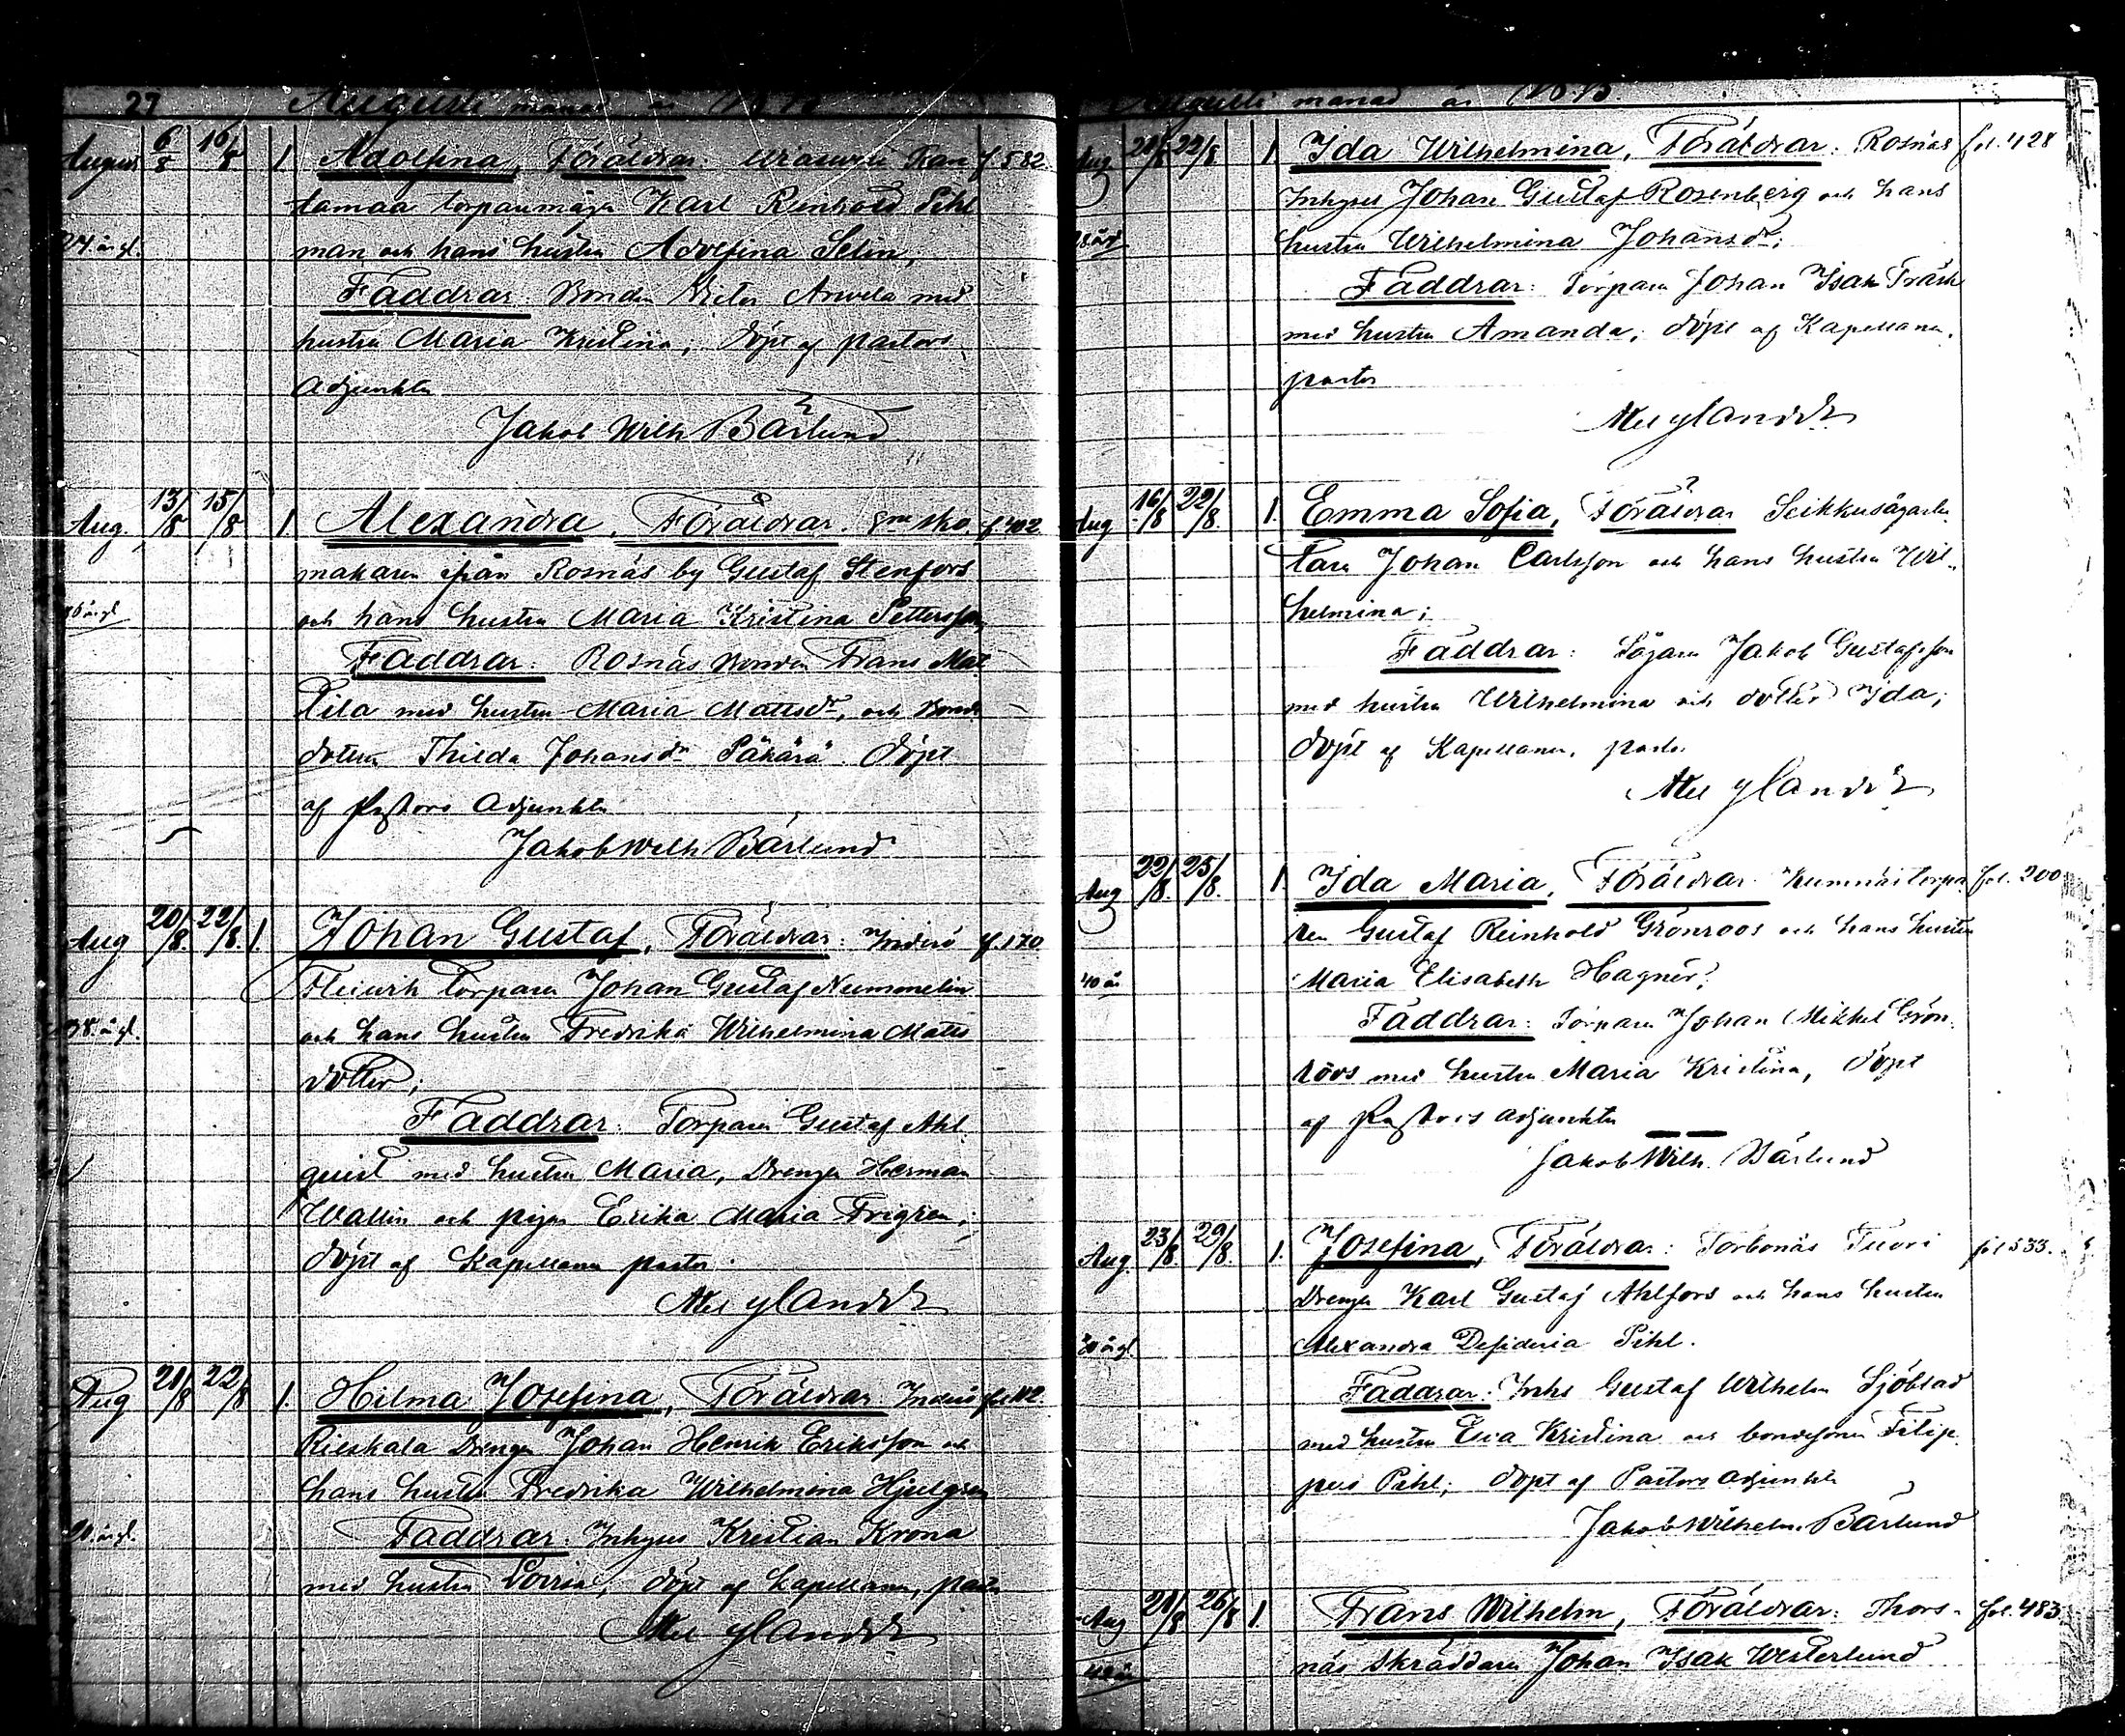 27 Augusti månad år
August 6/8 10/8 1. Adolfina, Föräldrar: Kran f 582
tamaa torpanmågen Karl Renhold Pihl
24 årgl. man och hans hustru Adolfina Selin,
Faddrar: Bonden Victor Anvela med
hustru Maria Kristina, döpt af pastors
Adjunkten
Jakob Wilh Bärlund
Aug. 13/8 15/8 1. Alexandra, Föräldrar: sko f 402.
makaren ifrån Rosnäs by Gustaf Stenfors
och hans hustru Maria Kristina Pettersson,
Faddrar: Rosnäs bonden Frans Mat
tila med hustru Maria Mattsdr, och bonde
dottern Thilda Johansdr Päkärä. Döpt
af Pastors Adjunkten
Jakob Wilh Bärlund
Aug 20/8. 22/8. 1. Johan Gustaf, Föräldrar: Inderö f. 170.
Fleiwik torparen Johan Gustaf Nummelin
38. årgl. och hans hustru Fredrika Wilhelmina Matts
dotter;
Faddrar: Torparen Gustaf Ahl
quist med hustru Maria, Drengen Herman
Wallin och pigan Erika Maria Frigren;
döpt af Kapellanen pastor.
Ylander
Aug 21/8 22/8 1. Hilma Josefina, Föräldrar Inderö fol 112.
Rieskala Drengen Johan Henrik Eriksson och
hans hustru Fredrika Wilhelmina Hjelgren
20. årgl. Faddrar: Inhyses Kristian Krona
med hustru Lovisa, döpt af Kapellanen, pastor
Ylander
Augusti månad år 1875.
Aug 20/8 22/8 1 Ida Wilhelmina, Föräldrar: Rosnäs fol. 428
Inhyses Johan Gustaf Rosenberg och hans
28 årgl hustru Wilhelmina Johansdr;
Faddrar: Torparen Johan Isak Träsk
med hustru Amanda; döpt af Kapellanen,
pastor
Ylander
Aug 16/8 22/8. 1. Emma Sofia, Föräldrar Seikkusågarbe
tare Johan Carlsson och hans hustru Wil-
helmina;
Faddrar: Sågaren Jakob Gustafsson
med hustru Wilhelmina och dotter Ida;
döpt af Kapellanen, pastor
Ylander
Aug 22/8. 25/8. 1 Ida Maria, Föräldrar: Kumnäs torpa fol. 200
ren Gustaf Reinhold Grönroos och hans hustru
40 år Maria Elisabeth Hagner;
Faddrar: Torparen Johan Mikkel Grön-
roos med hustru Maria Kristina, döpt
af Pastors adjunkten
Jakob Wilh. Bärlund
Aug. 23/8. 29/8. 1. Josefina, Föräldrar: Torbonäs Tuori fol 533.
Drengen Karl Gustaf Ahlfors och hans hustru
20 årgl. Alexandra Desideria Pihl.
Faddrar: Inhs Gustaf Wilhelm Sjöblad
med hustru Eva Kristina och bondesonen Filip
pus Pihl; döpt af Pastors adjunkten
Jakob Wilhelm Bärlund
Aug 21/8 26/8 1 Frans Wilhelm, Föräldrar: Thors- fol. 483
42 år näs skräddaren Johan Isak Westerlund